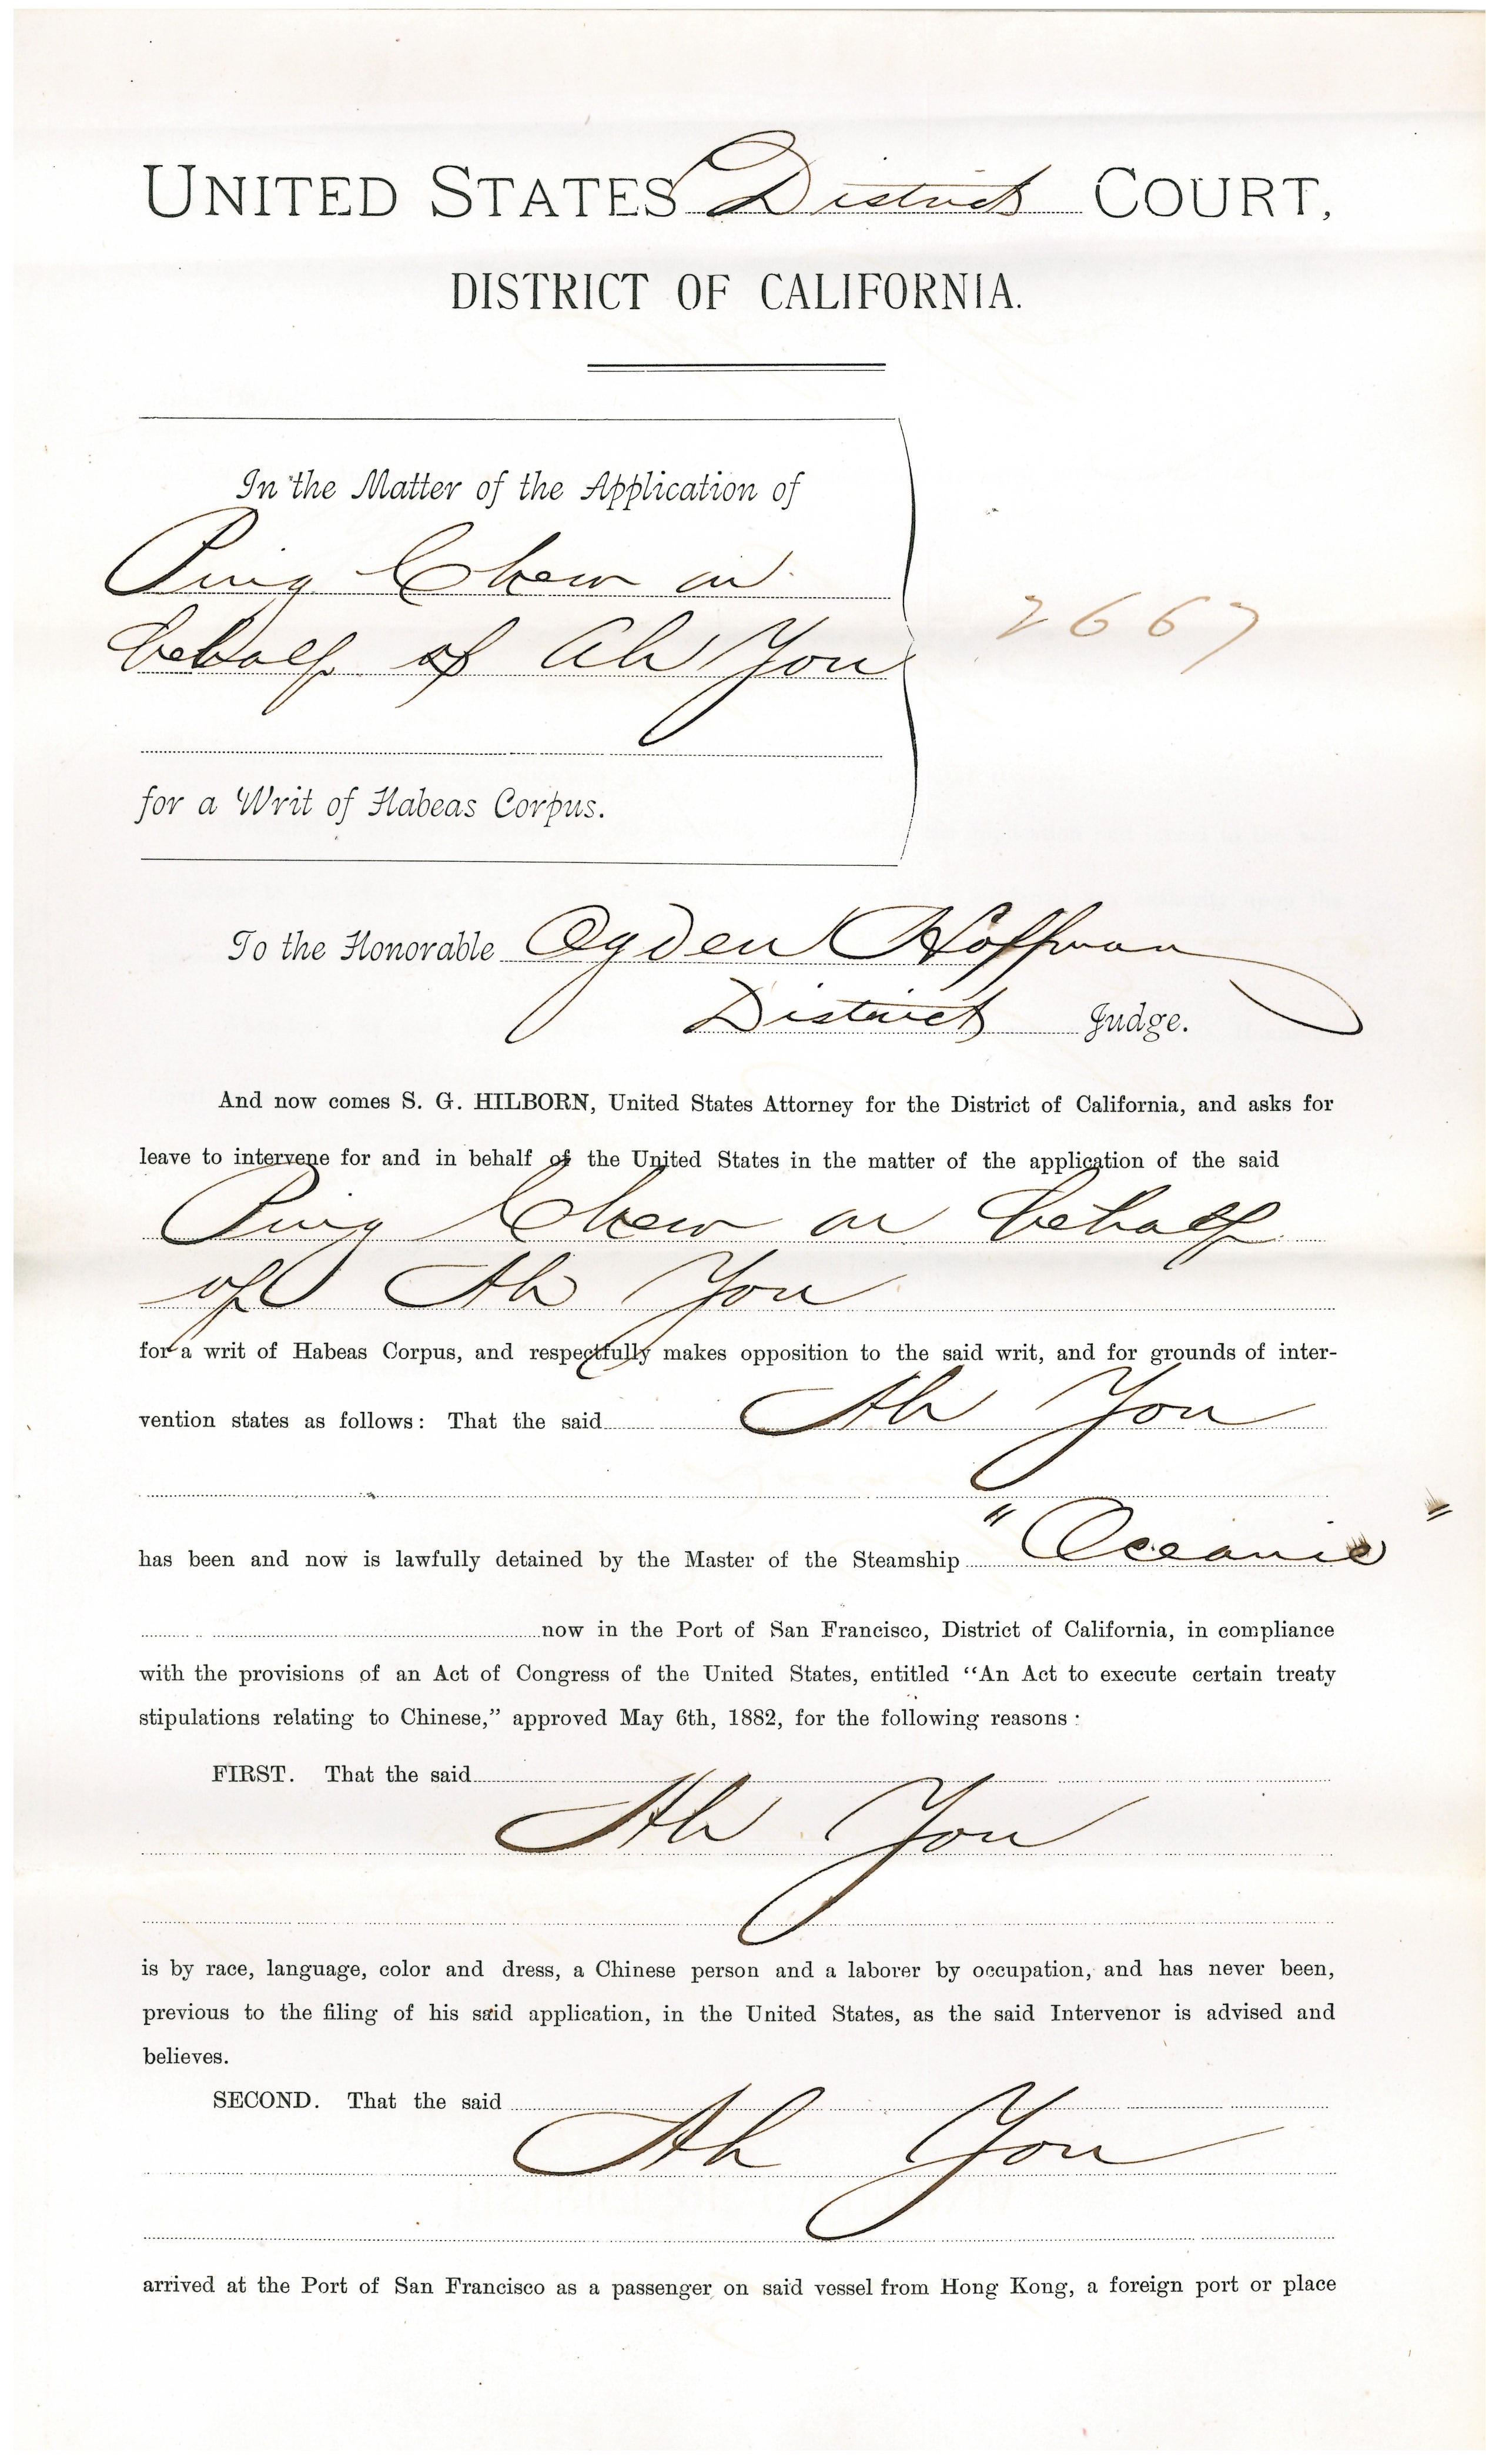 UNITED STATES District COURT,
DISTRICT OF CALIFORNIA.
In the Matter of the Application of
Ping Chew on
behalf of Ah You
2667
for a Writ of Habeas Corpus.
To the Honorable Ogden Hoffman
District Judge.
And now comes S. G. HILBORN, United States Attorney for the District of California, and asks for
leave to intervene for and in behalf of the United States in the matter of the application of the said
Ping Chew on behalf
of Ah You
for a writ of Habeas Corpus, and respectfully makes opposition to the said writ, and for grounds of inter-
vention states as follows: That the said Ah You
has been and now is lawfully detained by the Master of the Steamship "Oceanic"
now in the Port of San Francisco, District of California, in compliance
with the provisions of an Act of Congress of the United States, entitled “An Act to execute certain treaty
stipulations relating to Chinese,” approved May 6th, 1882, for the following reasons:
FIRST. That the said
Ah You
is by race, language, color and dress, a Chinese person and a laborer by occupation, and has never been,
previous to the filing of his said application, in the United States, as the said Intervenor is advised and
believes.
SECOND. That the said
Ah You
arrived at the Port of San Francisco as a passenger on said vessel from Hong Kong, a foreign port or place